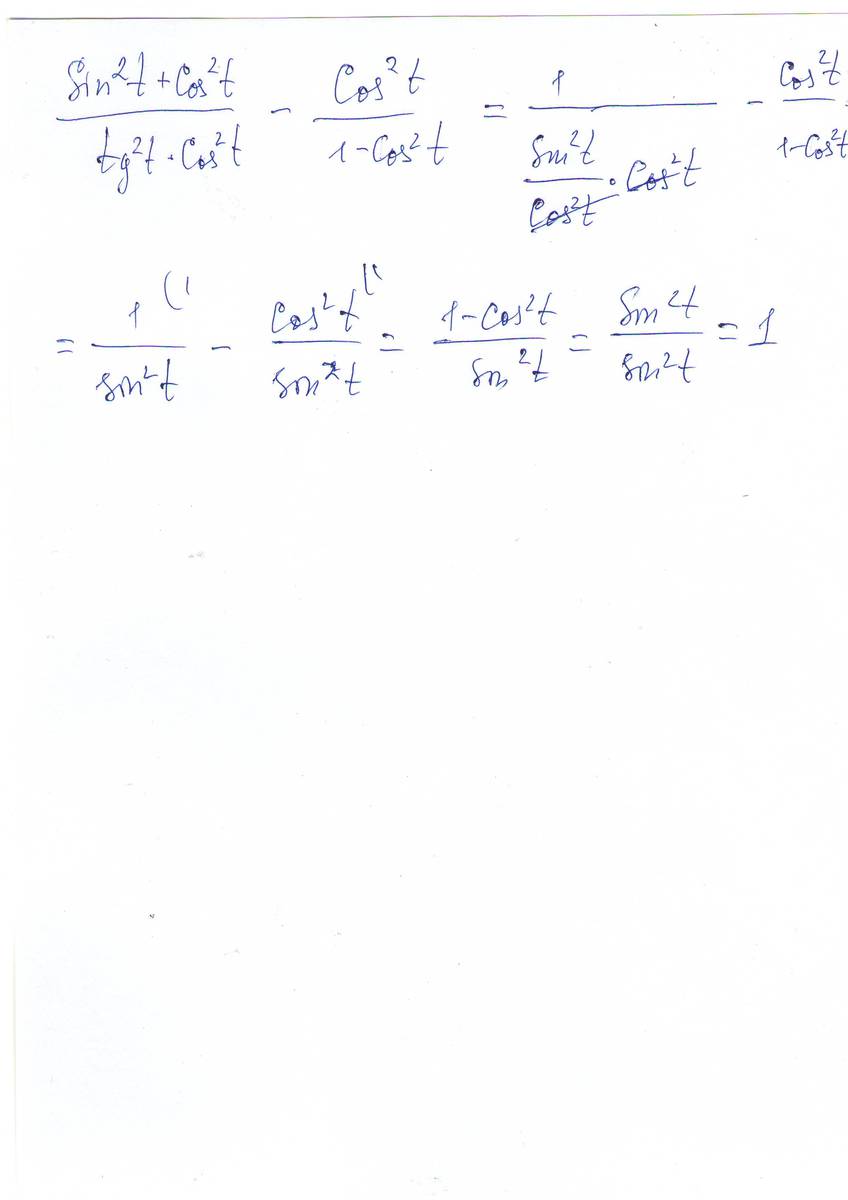 (Sin²t + Cos²t)/(tg²t · Cos²t) − Cos²t/(1−Cos²t) = 1/((Sin²t/Cos²t) · Cos²t) − Cos²t/(1−Cos²t)
= 1/Sin²t − Cos²t/Sin²t = (1−Cos²t)/Sin²t = Sin²t/Sin²t = 1